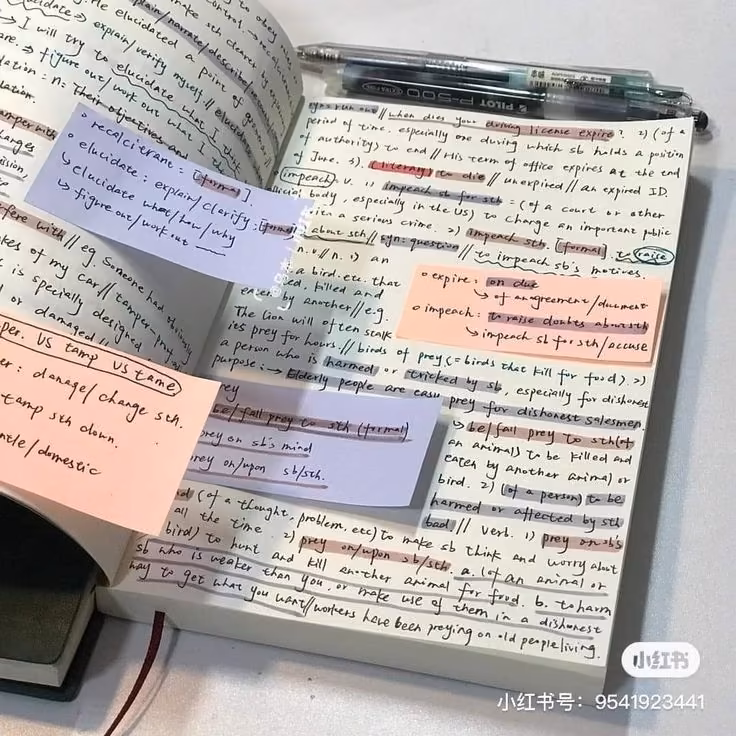 elucidate → explain/verify myself // elucidate
He elucidated a point of grammar
→ I will try to elucidate what I think
→ figure out/work out what I
n: Their objectives and
tamper with
interfere with // eg. Someone had obviously
of my car // tamper-proof
is specially designed
or damaged //
recalcitrant: [formal]
elucidate: explain/clarify: [formal]
↳ elucidate what/how/why
↳ figure out/work out
VS tamp VS tame
damage/change sth.
tamp sth down.
gentle/domestic
syn: run out // when does your driving license expire? 2) (of a
period of time, especially one during which sb holds a position
of authority) to end // His term of office expires at the end
of June. 3). (literary) to die // unexpired // an expired ID.
impeach: v. 1) impeach sb for sth = (of a court or other
official body, especially in the US) to charge an important public
with a serious crime. 2) impeach sth. [formal]. to raise
about sth // syn: question // to impeach sb's motives.
n. v // n. 1) an
a bird. etc. that
killed and
eaten by another // e.g.
The lion will often stalk
its prey for hours. // birds of prey (= birds that kill for food). 2)
a person who is harmed or tricked by sb, especially for dishonest
purpose: → Elderly people are easy prey for dishonest salesmen
expire: on due
↳ of an agreement/document
impeach: to raise doubts about sth
↳ impeach sb for sth/accuse
prey
be/fall prey to sth (formal)
prey on sb's mind
prey on/upon sb/sth.
↳ be/fall prey to sth (of
an animal) to be killed and
eaten by another animal or
bird. 2) (of a person) to be
harmed or affected by sth
bad // Verb. 1) prey on sb's
mind (of a thought, problem, etc) to make sb think and worry about
all the time 2) prey on/upon sb/sth. a. (of an animal or
bird) to hunt and kill another animal for food. b. to harm
sb who is weaker than you, or make use of them in a dishonest
way to get what you want // workers have been preying on old people living.
PILOT P-500 EXTRA FINE
小红书
小红书号：9541923441